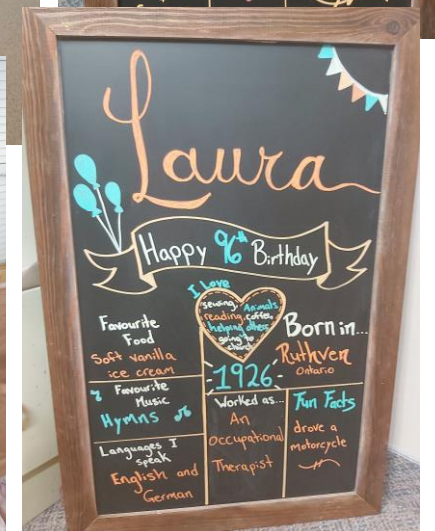 Laura
Happy 96th Birthday
I Love
sewing, Animals,
reading, coffee,
helping others
going to
church
Born in...
Ruthven
Ontario
1926
Favourite
Food
Soft vanilla
ice cream
Favourite
Music
Hymns
Languages I
speak
English and
German
Worked as...
An
Occupational
Therapist
Fun Facts
drove a
motorcycle